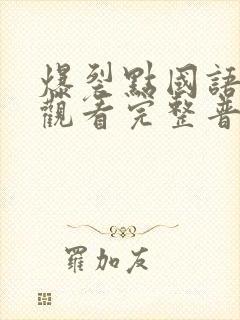 爆裂點國語
觀看完整普
羅加友